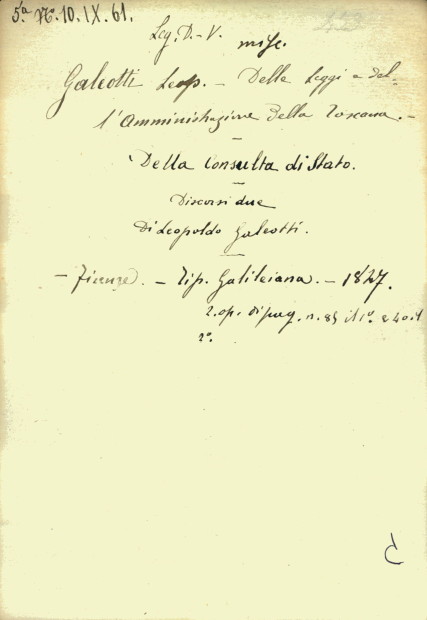 5.ª N.º 10. IX. 61.
Leg. D. - V. misc.
Galeotti Leop. - Delle Leggi e del-
l'Amministrazione Della Toscana. -
Della Consulta di Stato.
Discorsi due
Di Leopoldo Galeotti.
- Firenze. - Tip. Galileiana. - 1847.
2. op. di pag. n. 85 il 1º e 40 il
2º.